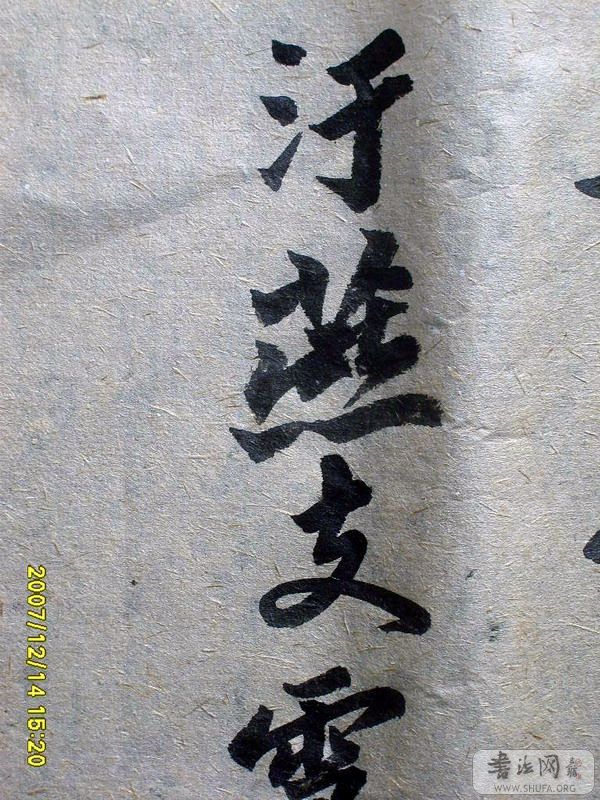 汙燕支雪
2007/12/14 15:20
书法网
WWW.SHUFA.ORG